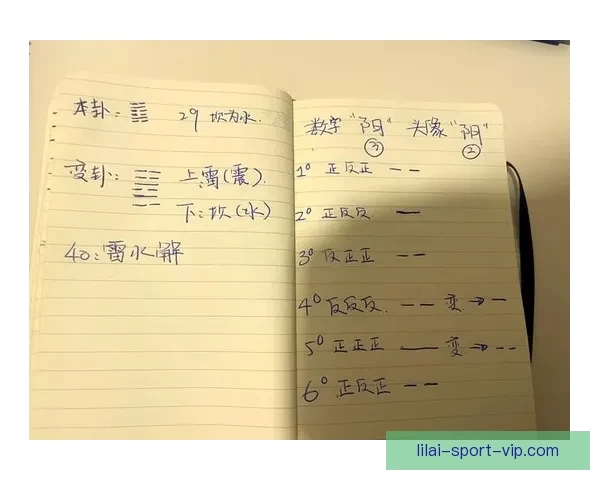 本卦: 29 坎为水.
变卦: 上:雷(震).
下:坎(水)
40:雷水解
数字"阳" 头像"阴"
③ ②
1° 正反正 — —
2° 正反反. —
3° 反正正 — —
4° 反反反. — — 变→—
5° 正正正 — 变→- -
6° 正反正 — —
lilai-sport-vip.com